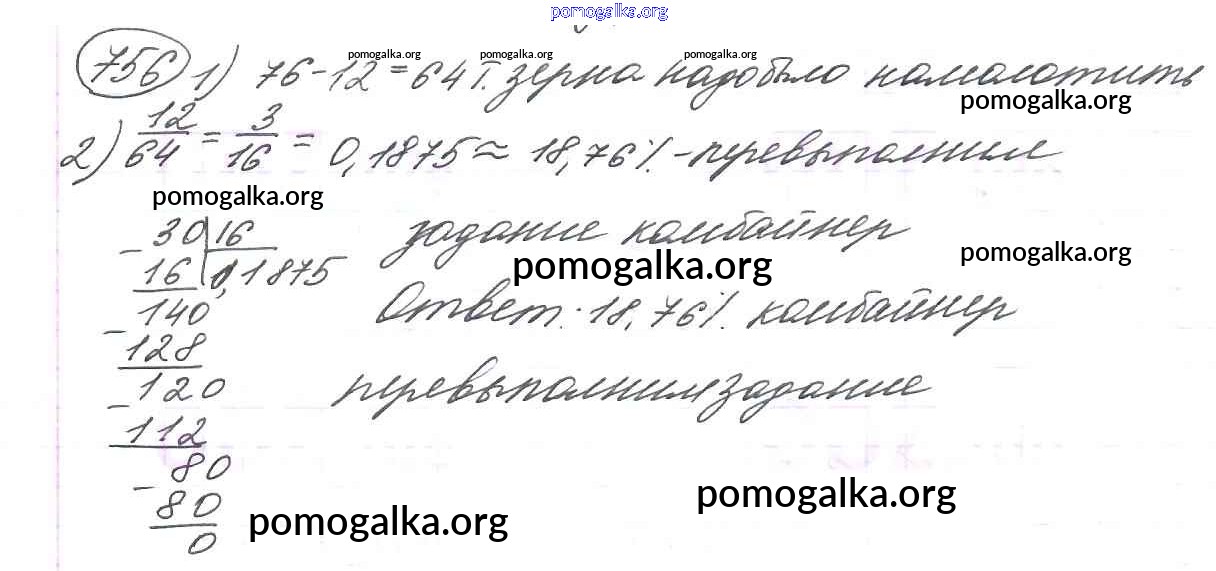 pomogalka.org
756 1) 76-12=64 т. зерна надо было намолотить
pomogalka.org pomogalka.org pomogalka.org
pomogalka.org
2) 12/64 = 3/16 = 0,1875 ≈ 18,76% - перевыполнил
pomogalka.org
задание комбайнер
pomogalka.org
pomogalka.org
Ответ: 18,76% комбайнер
перевыполнил задание
30 16
- 16 0,1875
140
- 128
120
- 112
80
- 80
0
pomogalka.org
pomogalka.org